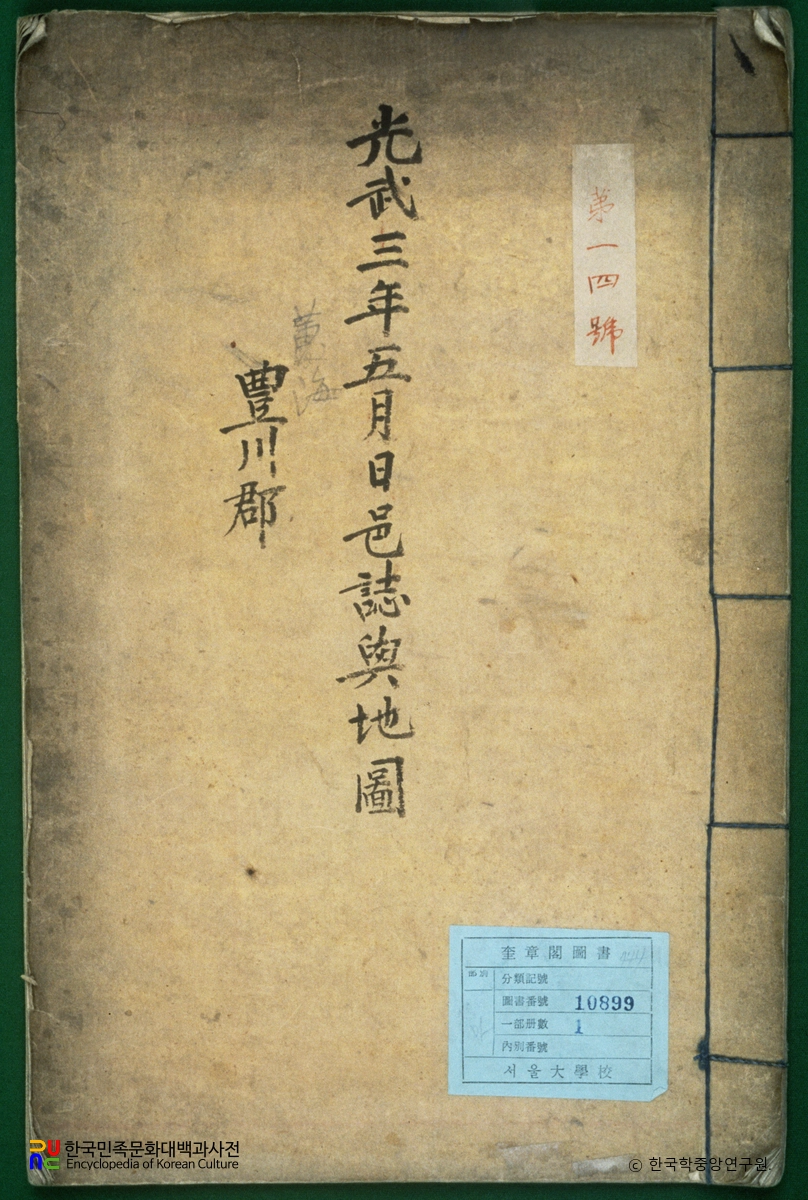 第一四號
光武三年五月日邑誌與地圖
黄海
豊川郡
奎章閣圖書
部別
分類記號
圖書番號 10899
一部册數 1
內別番號
서울大學校
한국민족문화대백과사전
Encyclopedia of Korean Culture
© 한국학중앙연구원